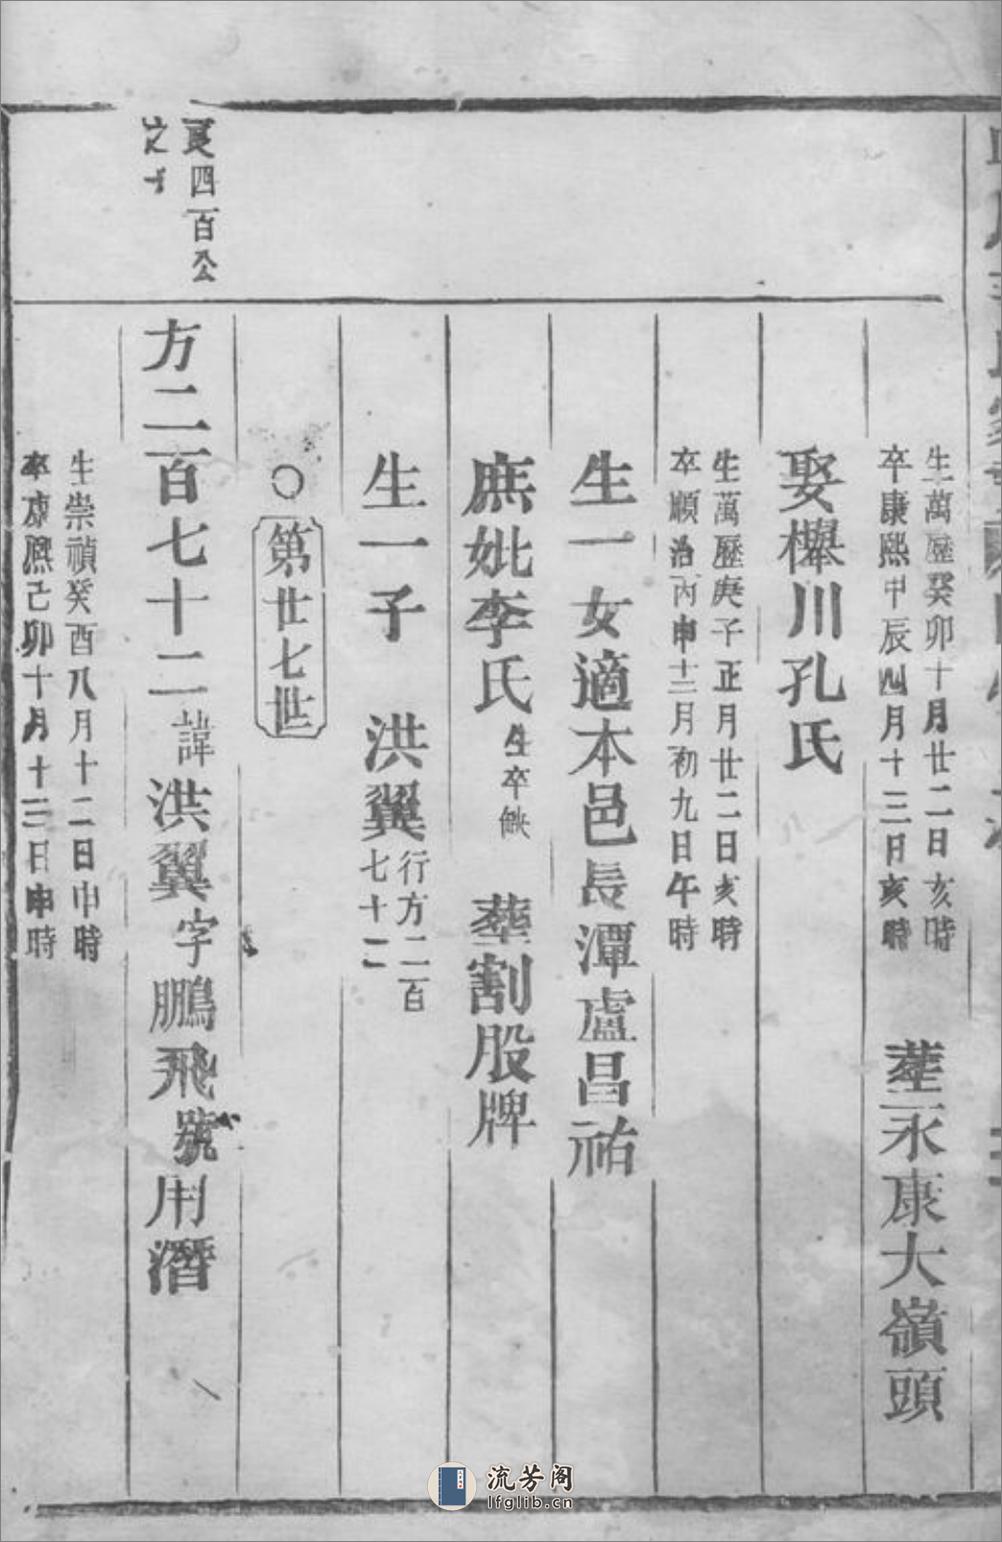 生萬歷癸卯十月廿二日亥時
卒康熙甲辰四月十三日亥時
葬永康大嶺頭
娶櫸川孔氏
生萬歷庚子正月廿二日亥時
卒順治丙申十二月初九日午時
生一女適本邑長潭盧昌祐
庶妣李氏生卒缺 葬割股牌
生一子 洪翼行方二百七十二
○第廿七世
良四百公之子
方二百七十二諱洪翼字鵬飛號用潛
生崇禎癸酉八月十二日申時
卒康熙己卯十月十三日申時
流芳阁
lfglib.cn